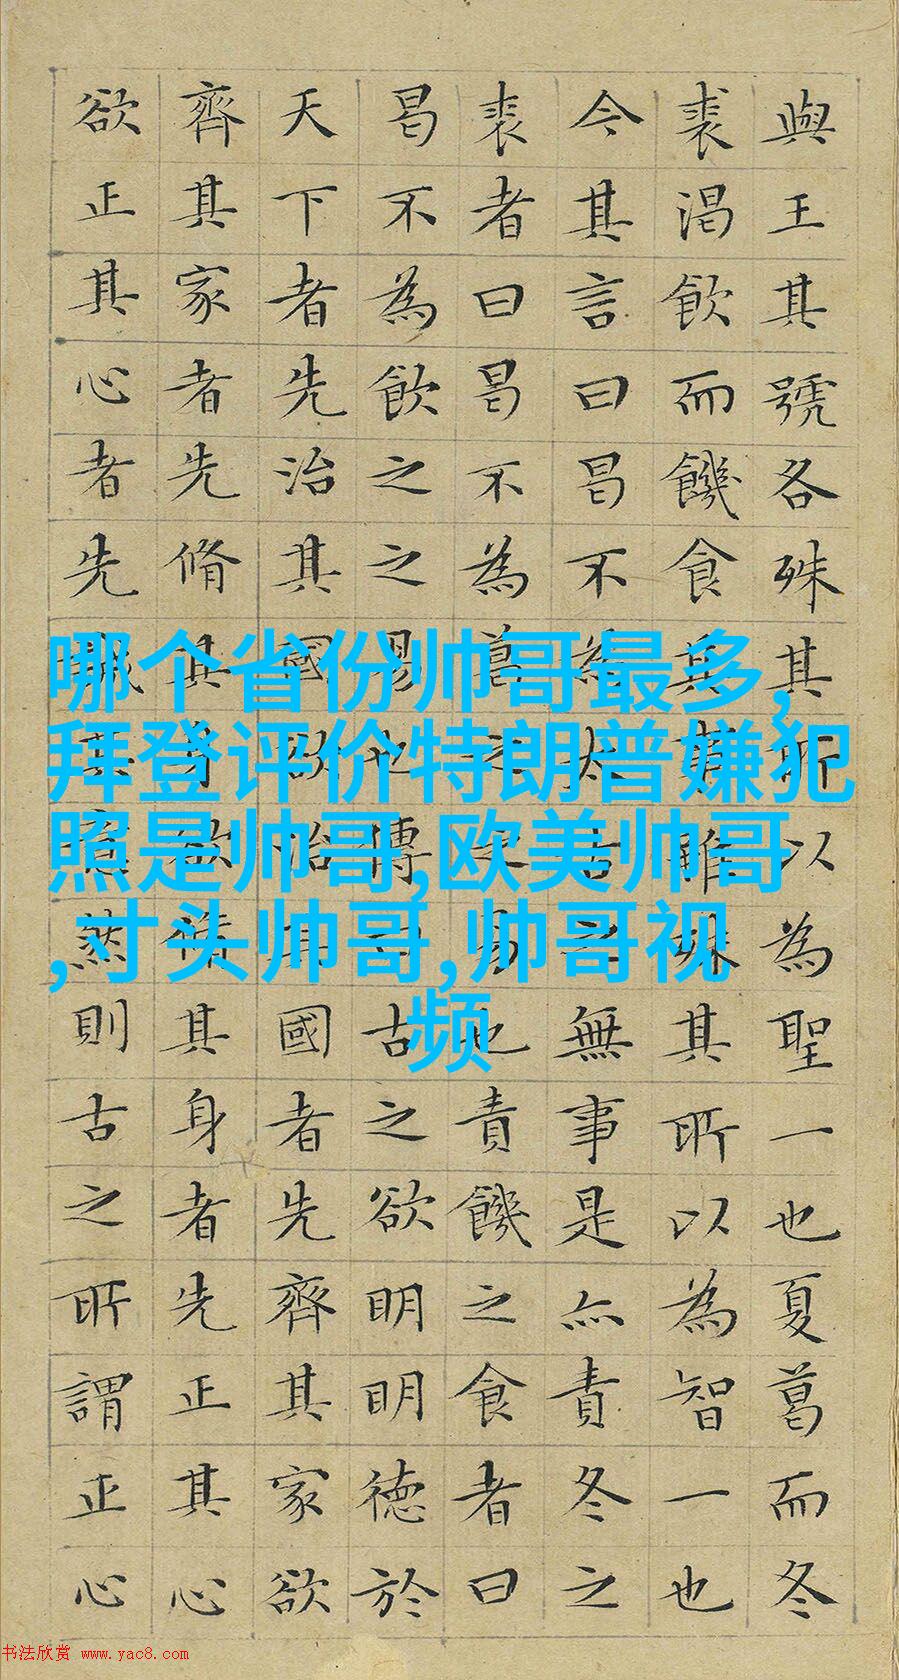 與王其號各殊其所以為聖一也夏葛而冬
裘渴飲而饑食其事雖殊其所以為智一也
今其言曰曷不為太古之無事是亦責冬之
裘者曰曷不為葛之之易也責饑之食者曰
曷不為飲之之易也傳曰古之欲明明德於
天下者先治其國欲治其國者先齊其家欲
齊其家者先脩其身欲脩其身者先正其心
欲正其心者先誠其意然則古之所謂正心
哪个省份帅哥最多,
拜登评价特朗普嫌犯
照是帅哥,欧美帅哥
,寸头帅哥,帅哥视
频
书法欣赏 www.yac8.com